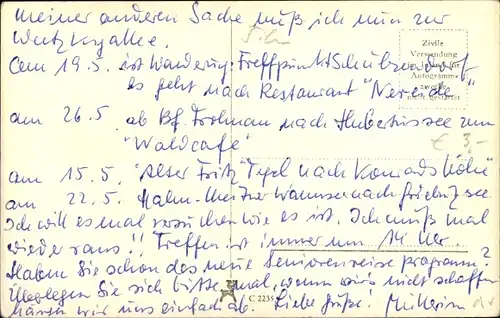 meiner anderen Sache muß ich nun zur
am 19.5. ist Wanderung. Treffpunkt Schützendorf
es geht nach Restaurant "Nereide"
am 26.5 ab Bf. Frohnau nach Hubertussee zum
"Waldcafé"
am 15.5. "Alter Fritz" Tegel nach Konradshöhe
am 22.5. Wannsee nach see
Ich will es mal versuchen wie es ist. Ich muß mal
wieder raus!! Treffen ist immer um 14 Uhr.
Haben Sie schon das neue Seniorenreise programm?
Überlegen Sie sich bitte mal, wenn wir's nicht schaffen
wir uns einfach ab. Liebe Grüße!
Zivile
Verwendung
Autogramm-
zwecke
nicht gestattet
€ 3,-
C 2235